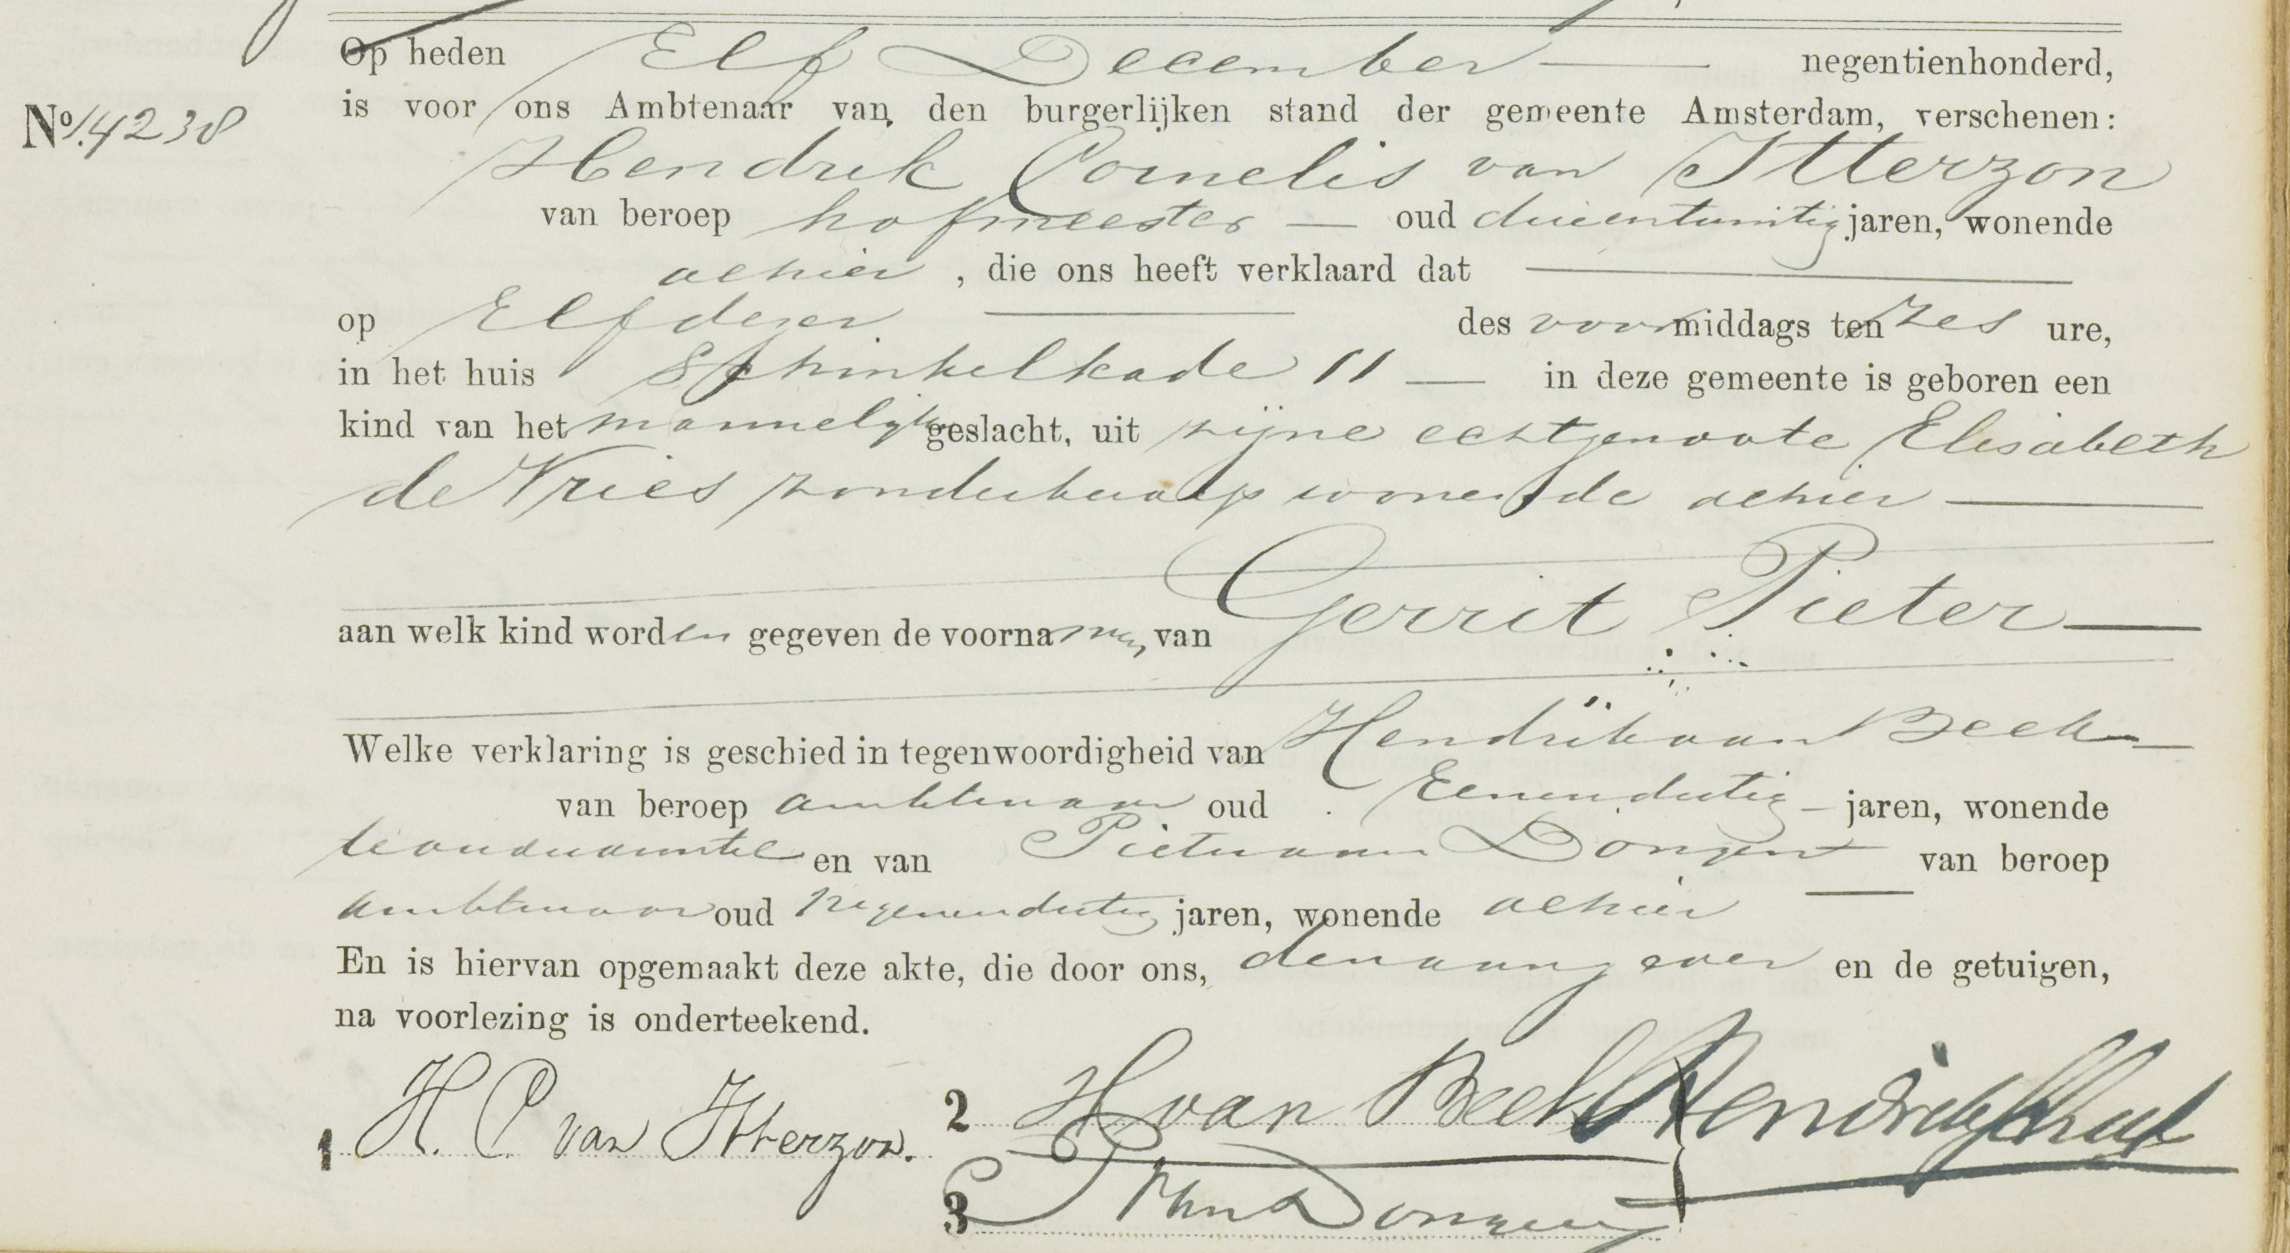 Op heden Elf December negentienhonderd,
No. 14238
is voor ons Ambtenaar van den burgerlijken stand der gemeente Amsterdam, verschenen:
Hendrik Cornelis van Itterzon
van beroep hofmeester oud drieentwintig jaren, wonende
alhier, die ons heeft verklaard dat
op Elf dezer des voormiddags ten zes ure,
in het huis Schinkelkade 11 in deze gemeente is geboren een
kind van het mannelijk geslacht, uit zijne echtgenoote Elisabeth
de Vries zonder beroep wonende alhier
Gerrit Pieter
aan welk kind worden gegeven de voornamen van
Welke verklaring is geschied in tegenwoordigheid van Hendrik van Beek
van beroep ambtenaar oud Eenendertig jaren, wonende
en van Pieter van Dongen van beroep
ambtenaar oud negenendertig jaren, wonende alhier
En is hiervan opgemaakt deze akte, die door ons, den aangever en de getuigen,
na voorlezing is onderteekend.
1 H. C. van Itterzon.
2 H van Beek
3 P van Dongen